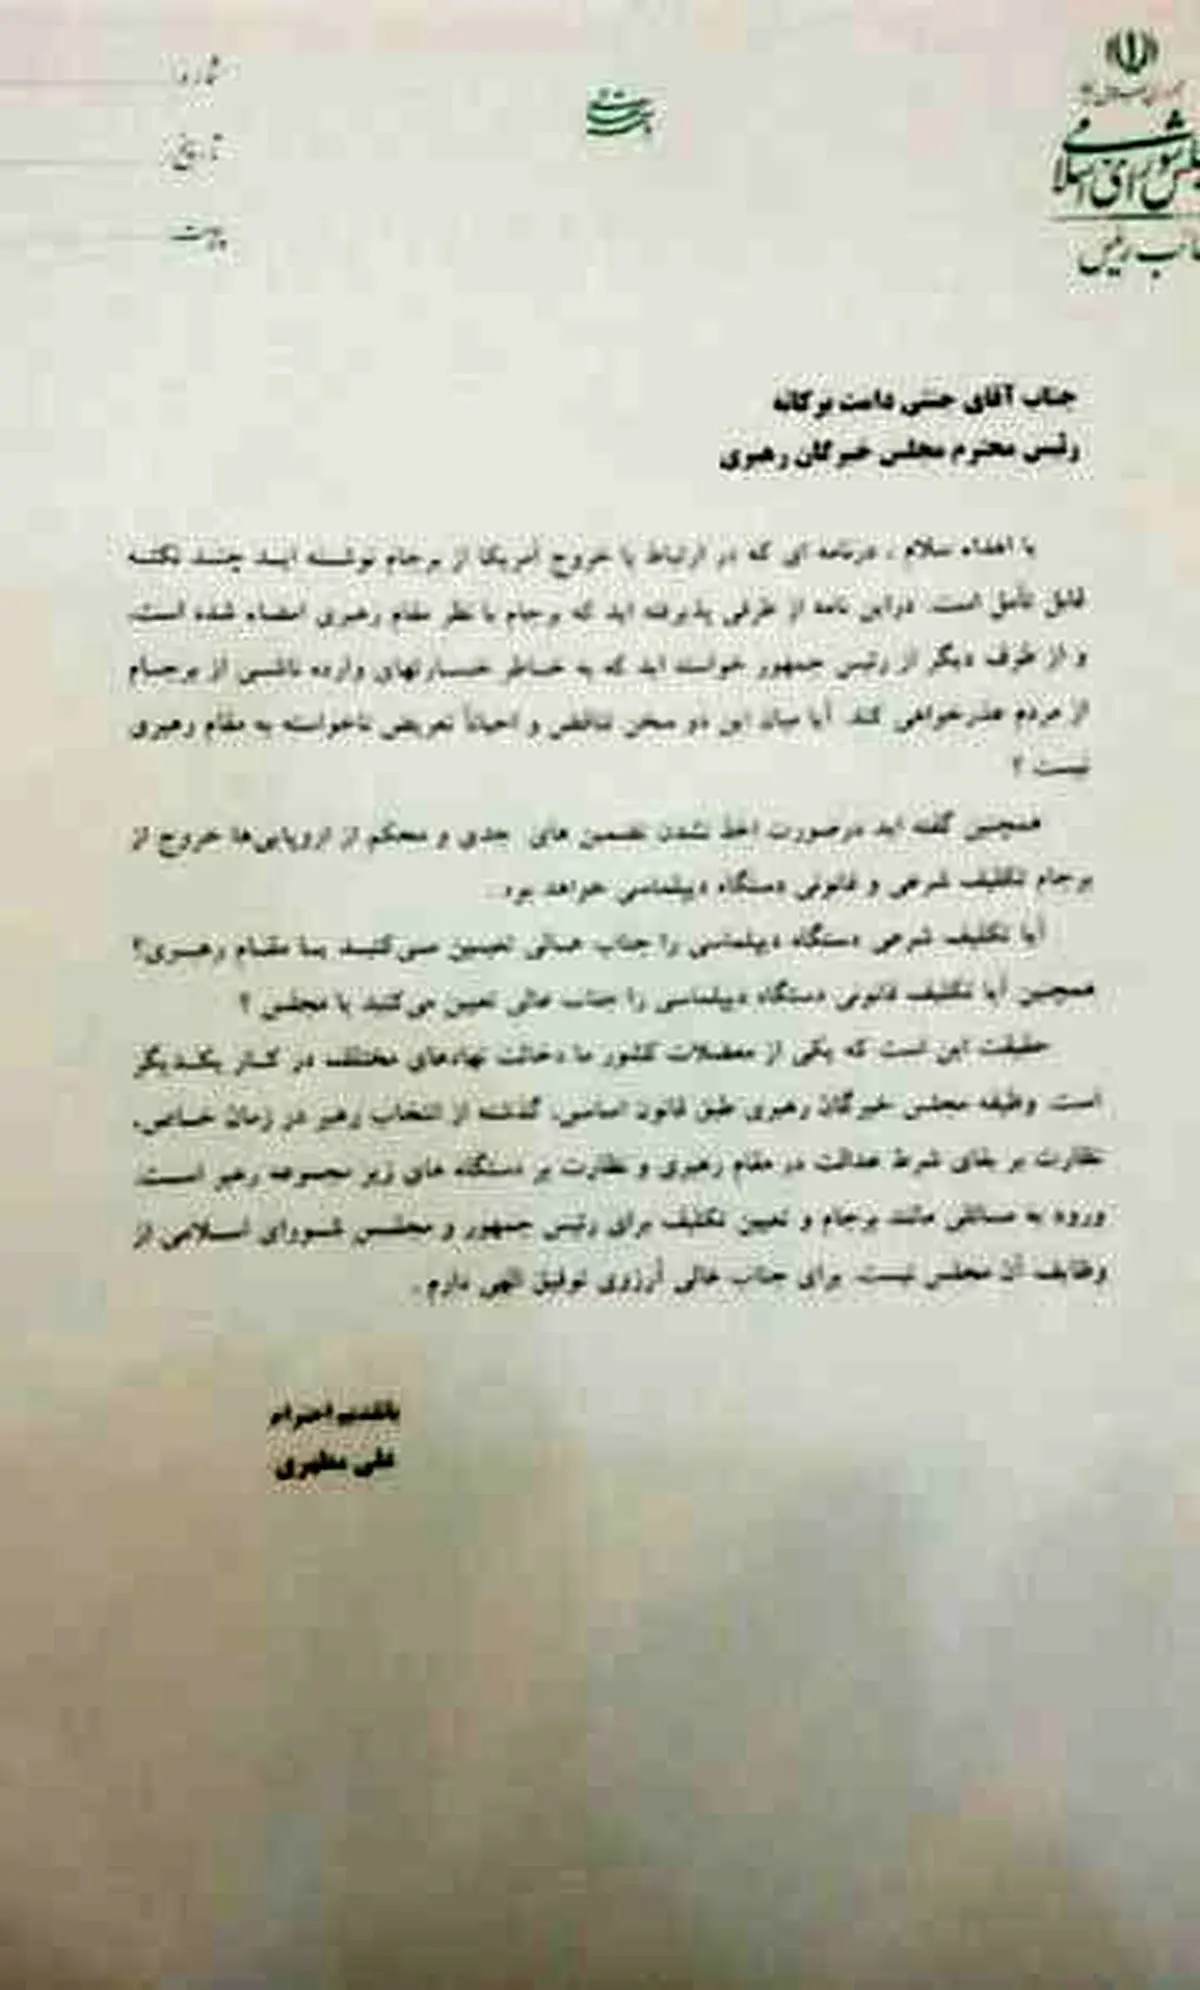 جمهوری اسلامی ایران
مجلس شورای اسلامی
نائب رئیس
باسمه تعالی
شماره
تاریخ
پیوست
جناب آقای جنتی دامت برکاته
رئیس محترم مجلس خبرگان رهبری
با اهداء سلام ، درنامه ای که در ارتباط با خروج آمریکا از برجام نوشته اید چند نکته
قابل تأمل است. دراین نامه از طرفی پذیرفته اید که برجام با نظر مقام رهبری امضاء شده است،
و از طرف دیگر از رئیس جمهور خواسته اید که به خاطر خسارتهای وارده ناشی از برجام
از مردم عذرخواهی کند. آیا میان این دو سخن تناقض و احیاناً تعریض ناخواسته به مقام رهبری
نیست ؟
همچنین گفته اید درصورت اخذ نشدن تضمین های جدی و محکم از اروپایی‌ها خروج از
برجام تکلیف شرعی و قانونی دستگاه دیپلماسی خواهد بود.
آیا تکلیف شرعی دستگاه دیپلماسی را جناب عالی تعیین می‌کنید یا مقام رهبری؟
همچنین آیا تکلیف قانونی دستگاه دیپلماسی را جناب عالی تعیین می‌کنید یا مجلس ؟
حقیقت این است که یکی از معضلات کشور ما دخالت نهادهای مختلف در کار یکدیگر
است. وظیفه مجلس خبرگان رهبری طبق قانون اساسی، گذشته از انتخاب رهبر در زمان خاص،
نظارت بر بقای شرط عدالت در مقام رهبری و نظارت بر دستگاه های زیر مجموعه رهبر است.
ورود به مسائلی مانند برجام و تعیین تکلیف برای رئیس جمهور و مجلس شورای اسلامی از
وظایف آن مجلس نیست. برای جناب عالی آرزوی توفیق الهی دارم .
باتقدیم احترام
علی مطهری